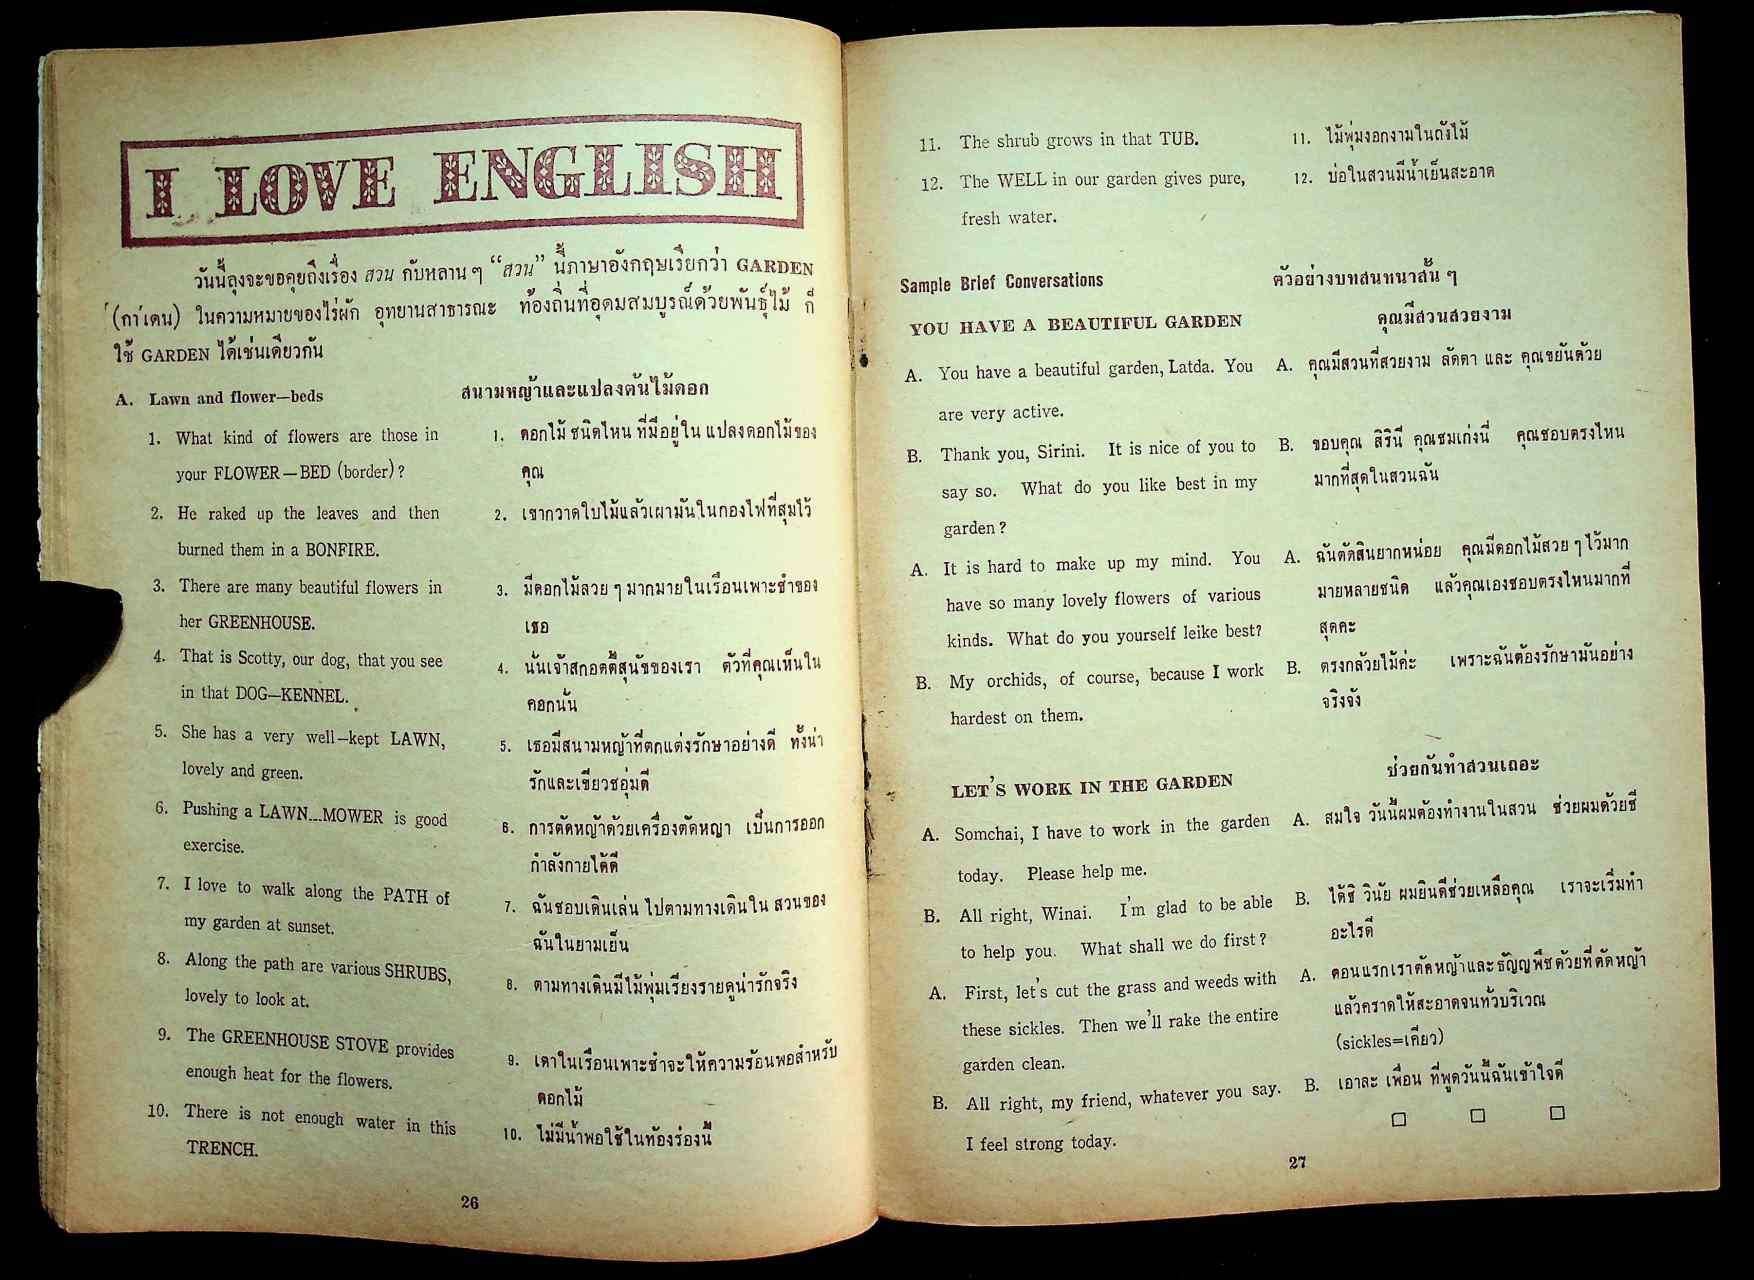 I LOVE ENGLISH
วันนี้ลุงจะขอคุยถึงเรื่อง สวน กับหลาน ๆ “สวน” นี้ภาษาอังกฤษเรียกว่า GARDEN
(กา่เดน) ในความหมายของไร่ผัก อุทยานสาธารณะ ท้องถิ่นที่อุดมสมบูรณ์ด้วยพันธุ์ไม้ ก็
ใช้ GARDEN ได้เช่นเดียวกัน
A. Lawn and flower—beds
สนามหญ้าและแปลงต้นไม้ดอก
1. What kind of flowers are those in
your FLOWER—BED (border)?
1. ดอกไม้ ชนิดไหน ที่มีอยู่ใน แปลงดอกไม้ของ
คุณ
2. He raked up the leaves and then
burned them in a BONFIRE.
2. เขากวาดใบไม้แล้วเผามันในกองไฟที่สุมไว้
3. There are many beautiful flowers in
her GREENHOUSE.
3. มีดอกไม้สวย ๆ มากมายในเรือนเพาะชำของ
เธอ
4. That is Scotty, our dog, that you see
in that DOG—KENNEL.
4. นั่นเจ้าสกอตตี้สุนัขของเรา ตัวที่คุณเห็นใน
คอกนั้น
5. She has a very well—kept LAWN,
lovely and green.
5. เธอมีสนามหญ้าที่ตกแต่งรักษาอย่างดี ทั้งน่า
รักและเขียวชอุ่มดี
6. Pushing a LAWN...MOWER is good
exercise.
6. การตัดหญ้าด้วยเครื่องตัดหญา เป็นการออก
กำลังกายได้ดี
7. I love to walk along the PATH of
my garden at sunset.
7. ฉันชอบเดินเล่น ไปตามทางเดินใน สวนของ
ฉันในยามเย็น
8. Along the path are various SHRUBS,
lovely to look at.
8. ตามทางเดินมีไม้พุ่มเรียงรายดูน่ารักจริง
9. The GREENHOUSE STOVE provides
enough heat for the flowers.
9. เตาในเรือนเพาะชำจะให้ความร้อนพอสำหรับ
ดอกไม้
10. There is not enough water in this
TRENCH.
10. ไม่มีน้ำพอใช้ในท้องร่องนี้
26
11. The shrub grows in that TUB.
11. ไม้พุ่มงอกงามในถังไม้
12. The WELL in our garden gives pure,
fresh water.
12. บ่อในสวนมีน้ำเย็นสะอาด
Sample Brief Conversations
ตัวอย่างบทสนทนาสั้น ๆ
YOU HAVE A BEAUTIFUL GARDEN
คุณมีสวนสวยงาม
A. You have a beautiful garden, Latda. You
are very active.
A. คุณมีสวนที่สวยงาม ลัดดา และ คุณขยันด้วย
B. Thank you, Sirini. It is nice of you to
say so. What do you like best in my
garden?
B. ขอบคุณ สิรินี คุณชมเก่งนี่ คุณชอบตรงไหน
มากที่สุดในสวนฉัน
A. It is hard to make up my mind. You
have so many lovely flowers of various
kinds. What do you yourself leike best?
A. ฉันตัดสินยากหน่อย คุณมีดอกไม้สวย ๆ ไว้มาก
มายหลายชนิด แล้วคุณเองชอบตรงไหนมากที่
สุดคะ
B. My orchids, of course, because I work
hardest on them.
B. ตรงกล้วยไม้ค่ะ เพราะฉันต้องรักษามันอย่าง
จริงจัง
LET'S WORK IN THE GARDEN
ช่วยกันทำสวนเถอะ
A. Somchai, I have to work in the garden
today. Please help me.
A. สมใจ วันนี้ผมต้องทำงานในสวน ช่วยผมด้วยซี
B. All right, Winai. I'm glad to be able
to help you. What shall we do first?
B. ได้ซิ วินัย ผมยินดีช่วยเหลือคุณ เราจะเริ่มทำ
อะไรดี
A. First, let's cut the grass and weeds with
these sickles. Then we'll rake the entire
garden clean.
A. ตอนแรกเราตัดหญ้าและธัญญพืชด้วยที่ตัดหญ้า
แล้วคราดให้สะอาดจนทั่วบริเวณ
(sickles=เคียว)
B. All right, my friend, whatever you say.
I feel strong today.
B. เอาละ เพื่อน ที่พูดวันนี้ฉันเข้าใจดี
27